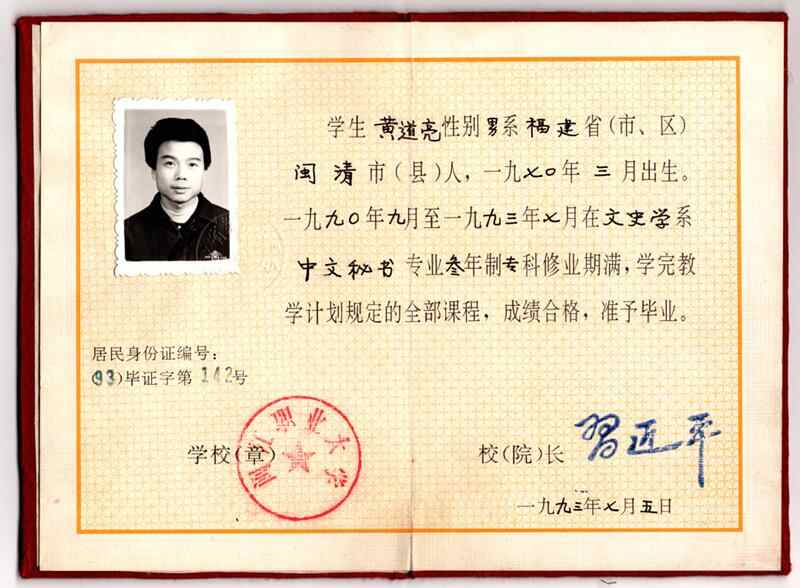 学生 黄道亮 性别 男 系 福建 省(市、区)
闽清 市(县)人,一九七〇年 三 月出生。
一九九〇年九月至一九九三年七月在文史学系
中文秘书 专业叁年制专科修业期满,学完教
学计划规定的全部课程,成绩合格,准予毕业。
居民身份证编号:
(93)毕证字第 142号
学校(章)
闽江职业大学
校(院)长 習近平
一九九三年七月五日